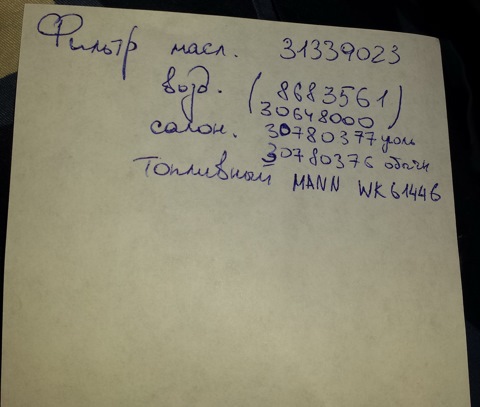 Фильтр масл. 31339023
возд. (8683561)
30648000
салон. 30780377 уголь
30780376 обычн
Топливный MANN WK61446